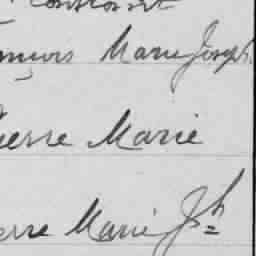 Marie Joseph
ierre Marie
erre Marie Jph